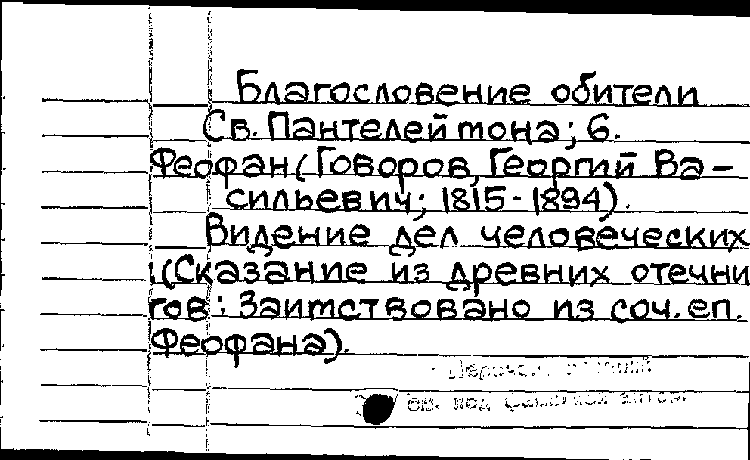 Благословение обители
Св. Пантелеймона; 6.
Феофан (Говоров, Георгий Ва-
сильевич; 1815-1894).
Видение дел человеческих
(Сказание из древних отечни
ков: Заимствовано из соч. еп.
Феофана).